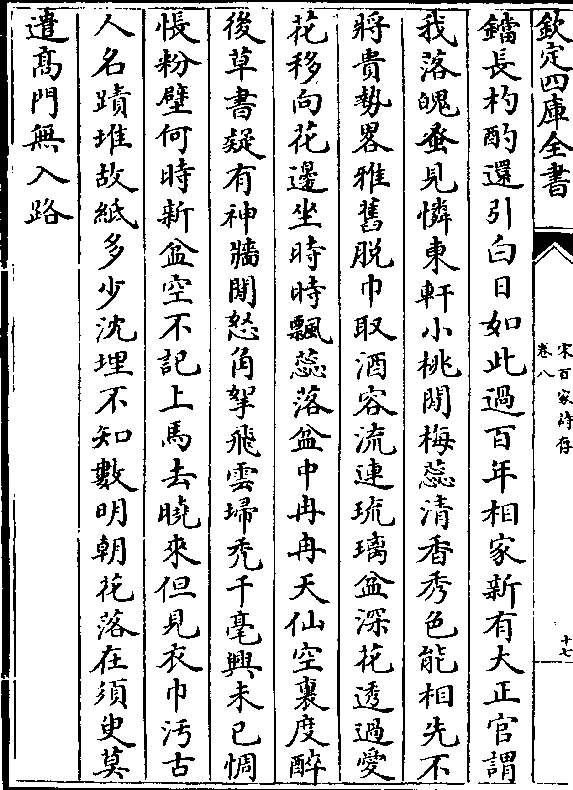 欽定四庫全書
宋百家詩存
卷八
十七
鐺長杓酌還引白日如此過百年相家新有大正官謂
我落魄蚤見憐東軒小桃開梅蕊清香秀色能相先不
將貴勢畧雅舊脫巾取酒容流連琉璃盆深花透過愛
花移向花邊坐時時飄蕊落盆中冉冉天仙空裏度醉
後草書疑有神牆開怒角拏飛雲埽禿千毫興未已惆
悵粉壁何時新盆空不記上馬去曉來但見衣巾汚古
人名蹟堆故紙多少沈埋不知數明朝花落在須臾莫
遣髙門無入路